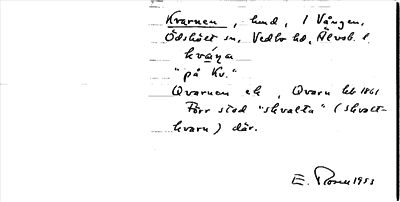 Kvarnen, hmd, i Vången,
Ödskölt sn, Vedbo hd, Älvsb. l.
kvána
"på Kv."
Qvarnen ek, Qvarn hb 1861
Förr stod "skvalta" (skvalt-
kvarn) där.
E. Rosen 1953